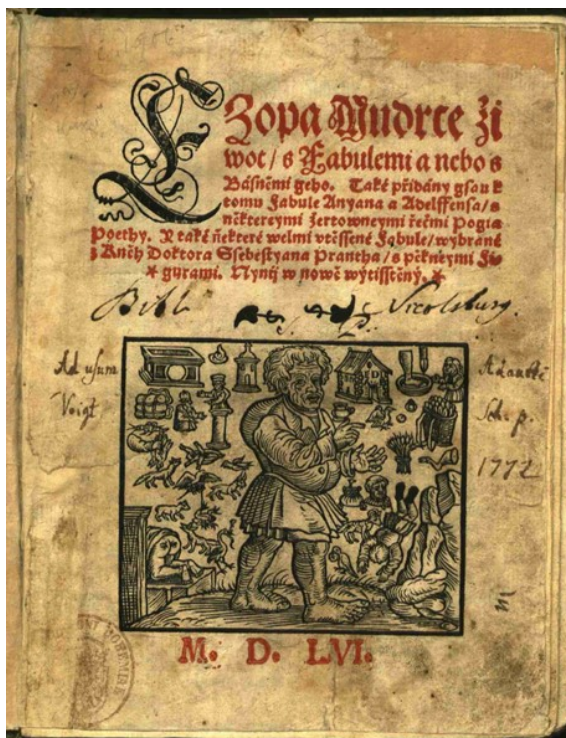 EZopa Mudrce ži
wot / s Fabulemi a nebo s
Básněmi geho. Také přidány gsau k
tomu Fabule Anyana a Adelffensa / s
některeymi žertowneymi řečmi Pogia
Poethy. Y také ňekteré welmi vtěssené Fabule / wybrané
z Kněh Doktora Ssebestyana Prantha / s pěkneymi Fi-
* gurami. Nynij w nowě wytisstěný. *
Bibl. Nicolsburg.
S. P.
Ad usum
Voigt
Sch. p.
1772
M. D. LVI.